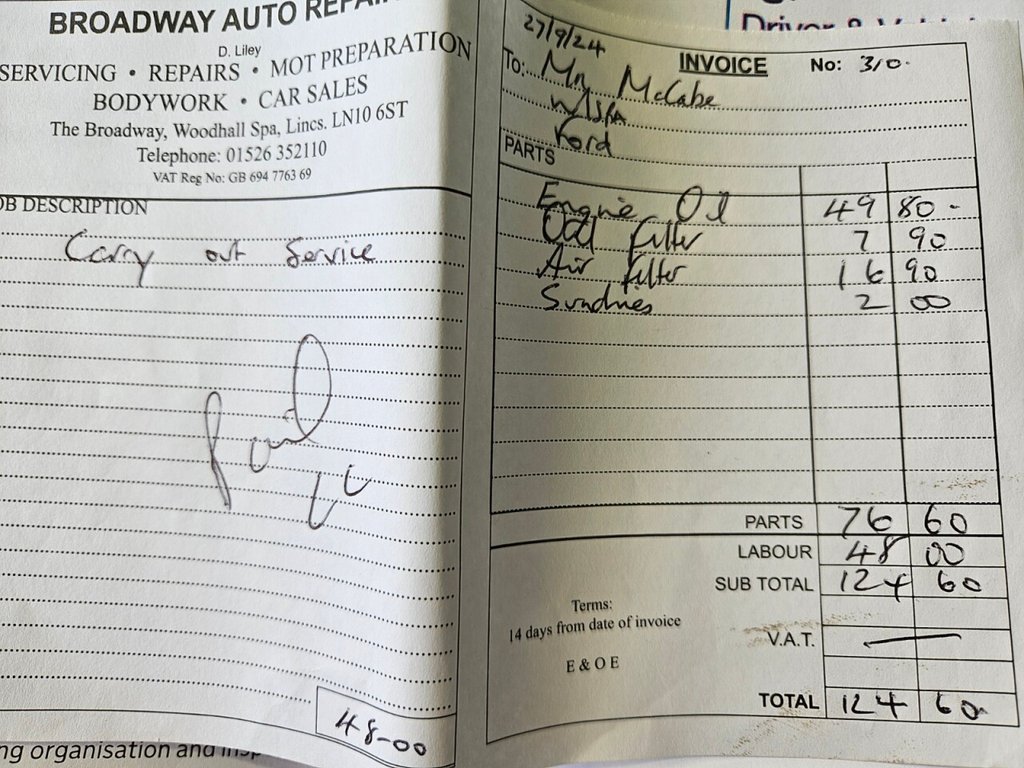 BROADWAY AUTO REPAIR
D. Liley
SERVICING • REPAIRS • MOT PREPARATION
BODYWORK • CAR SALES
The Broadway, Woodhall Spa, Lincs. LN10 6ST
Telephone: 01526 352110
VAT Reg No: GB 694 7763 69
OB DESCRIPTION
Carry out Service
Paid
48-00
ng organisation and insp
Driver & Vehicl
27/9/24
INVOICE No: 310.
To: Mr McCabe
W/SPA
Ford
PARTS
Engine Oil 49 80-
Oil filter 7 90
Air filter 16 90
Sundries 2 00
PARTS 76 60
LABOUR 48 00
SUB TOTAL 124 60
Terms:
14 days from date of invoice
V.A.T. —
E & O E
TOTAL 124 60